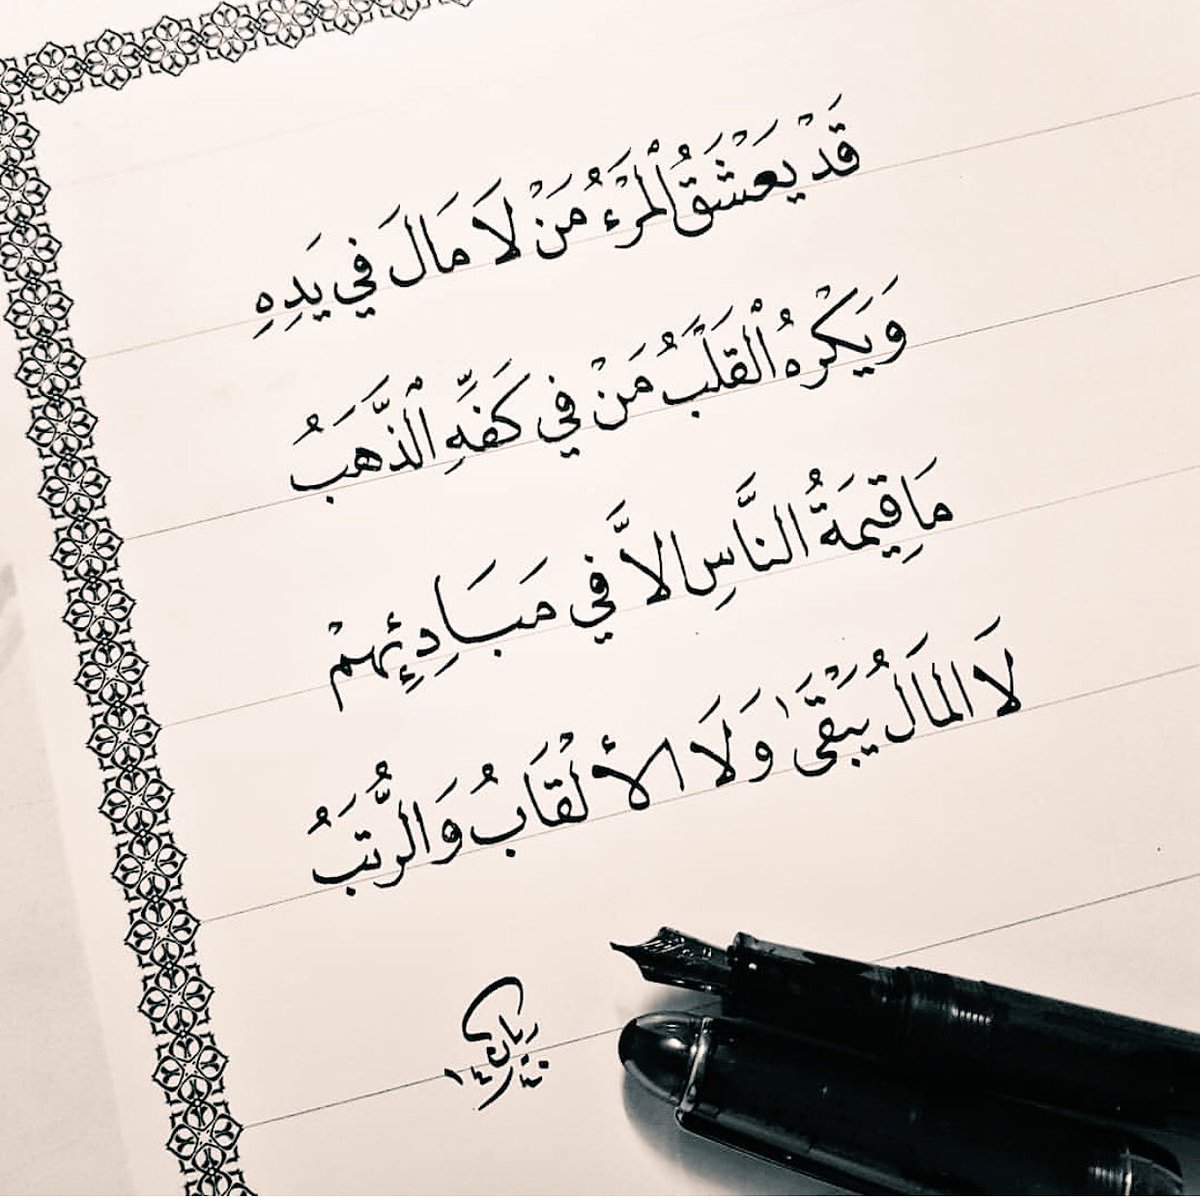 قَدْ يَعْشَقُ ٱلْمَرْءُ مَنْ لَا مَالَ فِي يَدِهِ
وَيَكْرَهُ ٱلْقَلْبُ مَنْ فِي كَفِّهِ ٱلذَّهَبُ
مَا قِيمَةُ النَّاسِ الاَّ فِي مَبَادِئِهِمْ
لَا المَالُ يَبْقَىٰ وَلَا الأَلْقَابُ وَالرُّتَبُ